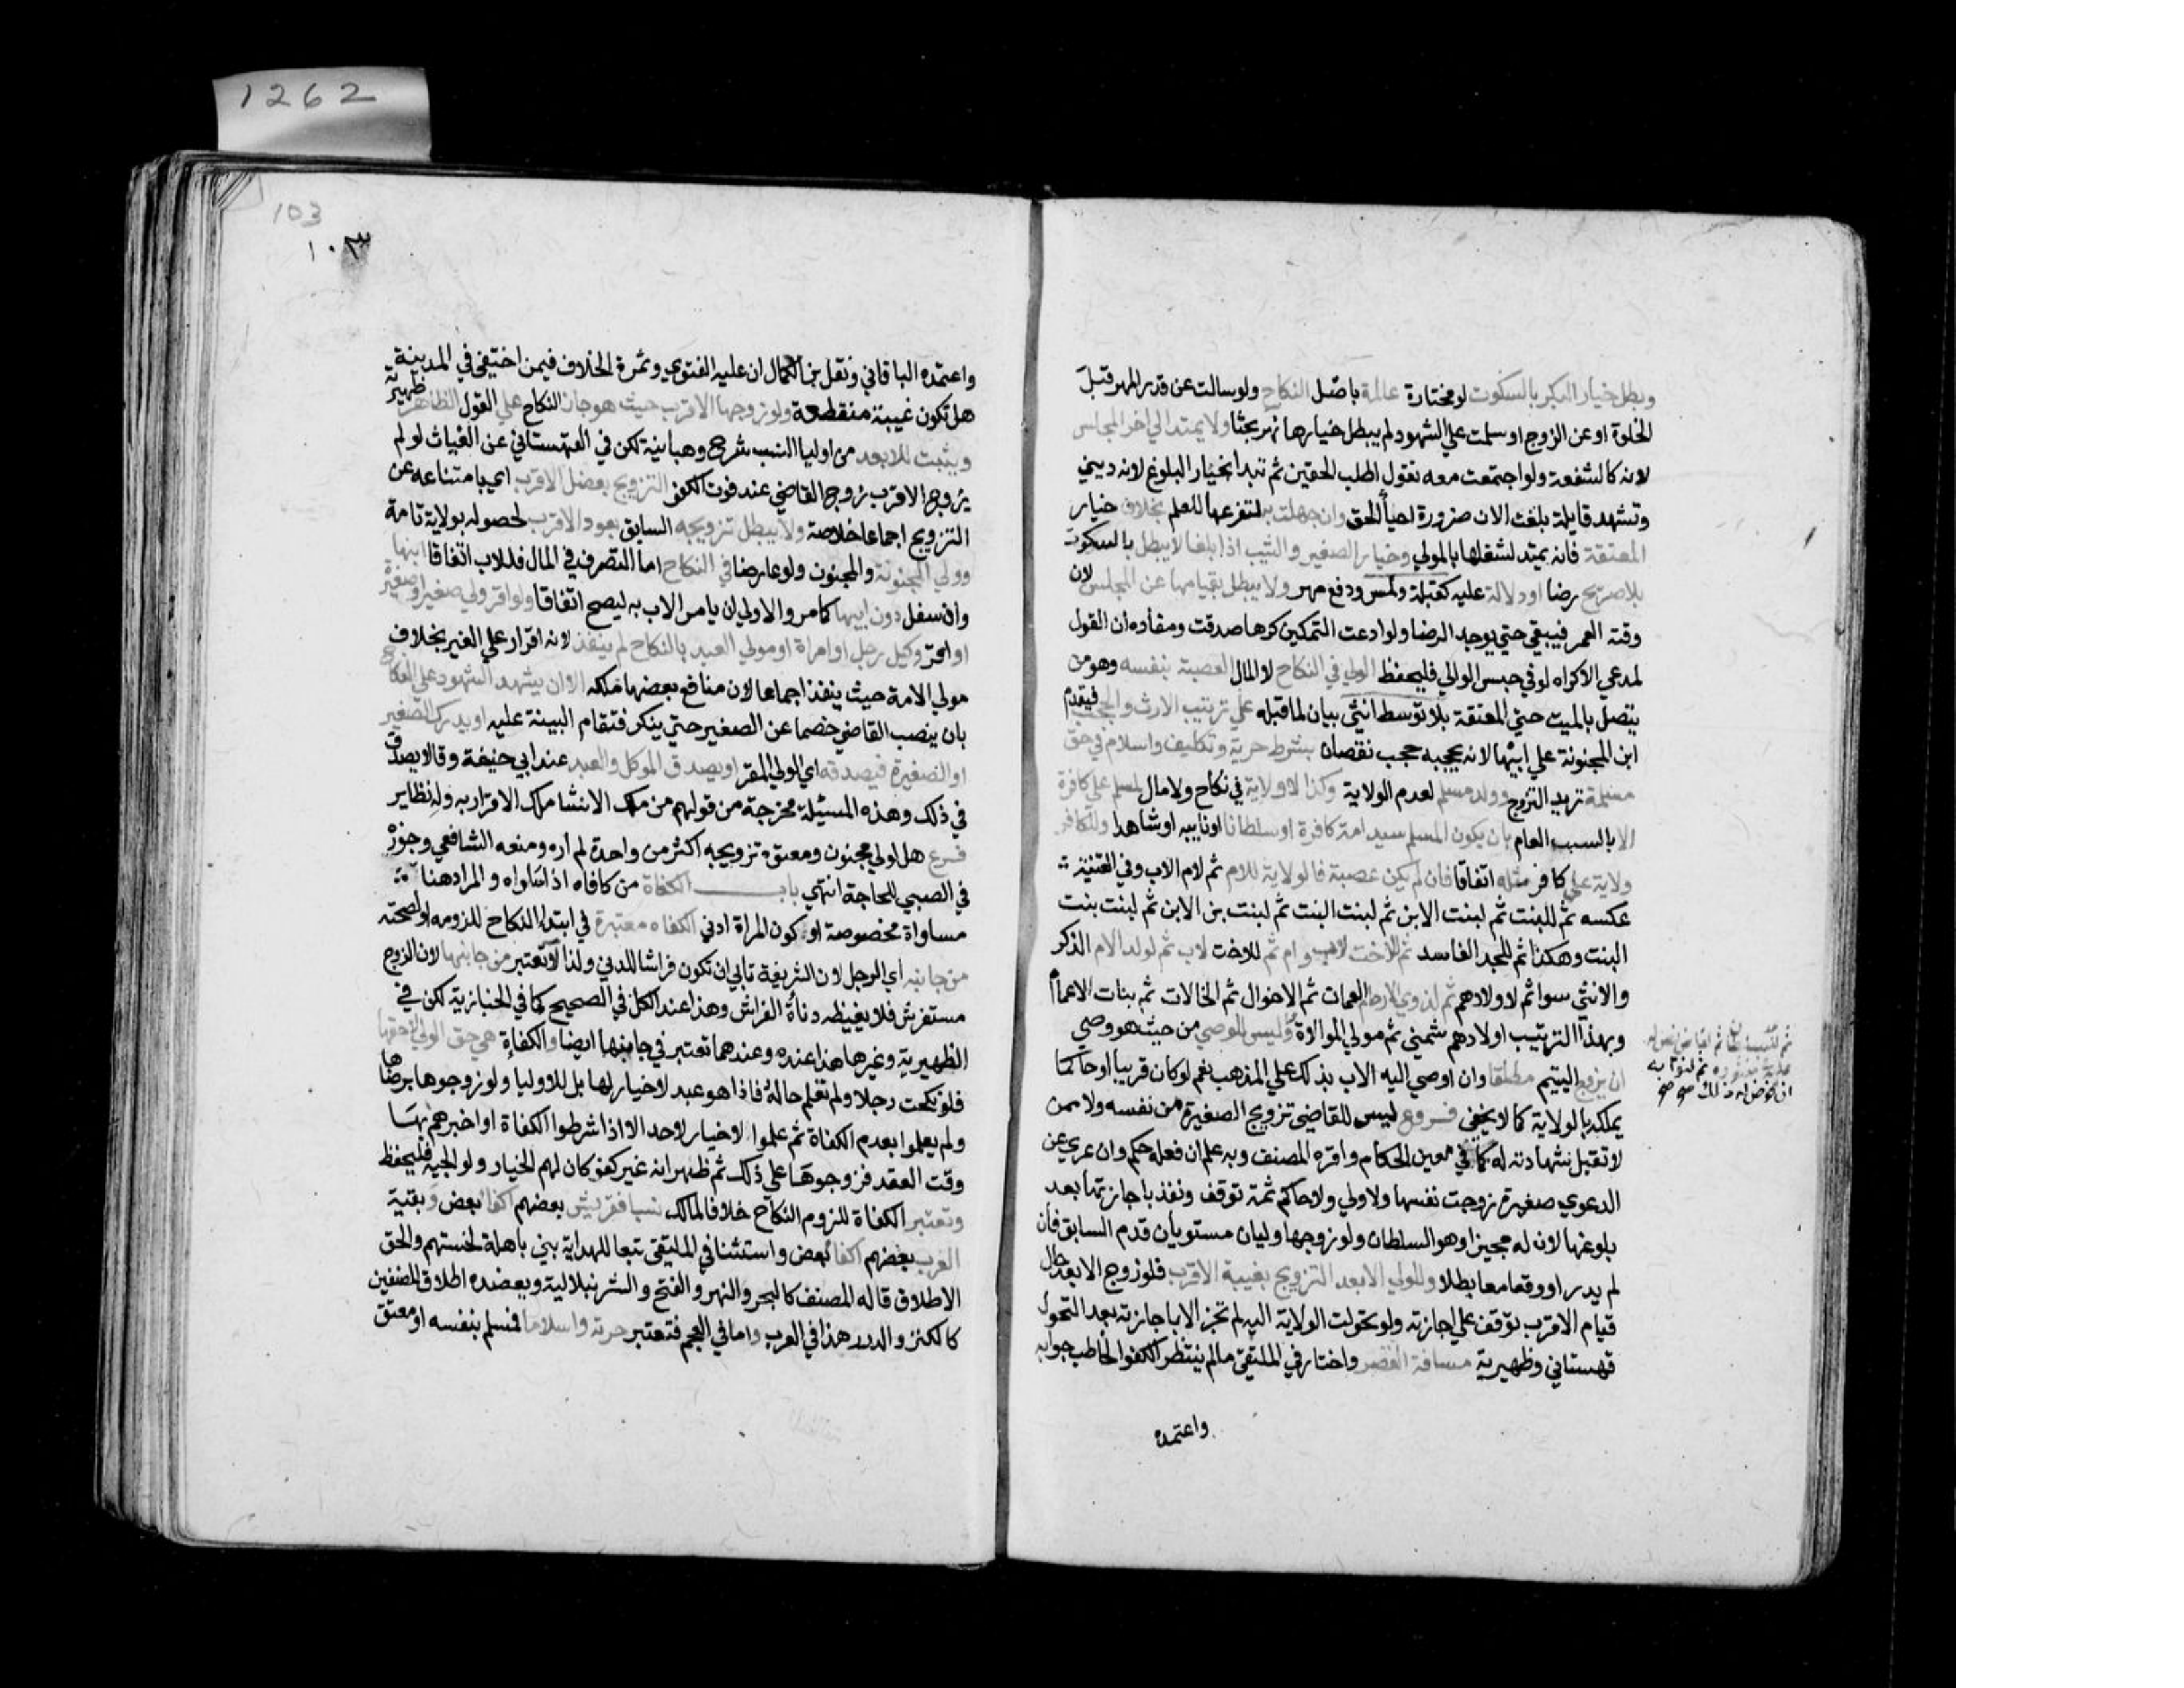 وبطل خيار البكر بالسكوت لو مختارة عالمة باصل النكاح ولو سالت عن قدر المهر قبل
الخلوة او عن الزوج او سلمت علي الشهود لم يبطل خيارها نهر بحثا ولا يمتد الي اخر المجلس
لانه كالشفعة ولو اجتمعت معه تقول اطلب الحقين ثم تبدا بخيار البلوغ لانه ديني
وتشهد قايلة بلغت الان ضرورة احيا الحق وان جهلت به لتفرغها للعلم بخلاف خيار
المعتقة فانه يمتد لشغلها بالمولي وخيار الصغير والثيب اذا بلغا لا يبطل بالسكوت
بلا صريح رضا او دلالة عليه كقبلة ولمس ودفع مهر ولا يبطل بقيامها عن المجلس لان
وقته العمر فيبقي حتي يوجد الرضا ولو ادعت التمكين كرها صدقت ومفاده ان القول
لمدعي الاكراه لو في حبس الوالي فليحفظ الولي في النكاح لا المال العصبة بنفسه وهو من
يتصل بالميت حتي المعتقة بلا توسط انثي بيان لما قبله علي ترتيب الارث والحجب فيقدم
ابن المجنونة علي ابيها لانه يحجبه حجب نقصان بشرط حرية وتكليف واسلام في حق
مسلمة تريد التزوج وولد مسلم لعدم الولاية وكذا لا ولاية في نكاح ولا مال لمسلم علي كافرة
الا بالسبب العام بان يكون المسلم سيد امة كافرة او سلطانا او نايبه او شاهدا وللكافر
ولاية علي كافر مثله اتفاقا فان لم يكن عصبة فالولاية للام ثم لام الاب وفي القنية
عكسه ثم للبنت ثم لبنت الابن ثم لبنت البنت ثم لبنت بن الابن ثم لبنت بنت
البنت وهكذا ثم للجد الفاسد ثم للاخت لاب وام ثم للاخت لاب ثم لولد الام الذكر
والانثي سوا ثم لاولادهم ثم لذوي الارحام العمات ثم الاخوال ثم الخالات ثم بنات الاعمام
وبهذا الترتيب اولادهم شمني ثم مولي الموالاة وليس للوصي من حيث هو وصي
ان يزوج اليتيم مطلقا وان اوصي اليه الاب بذلك علي المذهب نعم لو كان قريبا او حاكما
يملكه بالولاية كما لا يخفي فروع ليس للقاضي تزويج الصغيرة من نفسه ولا ممن
لا تقبل شهادته له كما في معين الحكام واقره المصنف وبه علم ان فعله حكم وان عري عن
الدعوي صغيرة زوجت نفسها ولا ولي ولا حاكم ثمة توقف ونفذ باجازتها بعد
بلوغها لان له مجيزا وهو السلطان ولو زوجها وليان مستويان قدم السابق فان
لم يدر او وقعا معا بطلا وللولي الابعد التزويج بغيبة الاقرب فلو زوج الابعد حال
قيام الاقرب توقف علي اجازته ولو تحولت الولاية اليه لم تجز الا باجازته بعد التحول
قهستاني وظهيرية مسافة القصر واختار في الملتقي ما لم ينتظر الكفو الخاطب جوابه
واعتمده
ثم للسلطان ثم لقاض نص له
عليه في منشوره ثم لنوابه
ان فوض له ذلك صح صح
1262
103
١٠٣
واعتمده الباقاني ونقل بن الكمال ان عليه الفتوي وثمرة الخلاف فيمن اختفي في المدينة
هل تكون غيبة منقطعة ولو زوجها الاقرب حيث هو جاز النكاح علي القول الظاهر ظهيرية
ويثبت للابعد من اوليا النسب شرح وهبانية لكن في القهستاني عن الغياث لو لم
يزوج الاقرب زوج القاضي عند فوت الكفو التزويج بعضل الاقرب اي بامتناعه عن
التزويج اجماعا خلاصة ولا يبطل تزويجه السابق بعود الاقرب لحصوله بولاية تامة
وولي المجنونة والمجنون ولو عارضا في النكاح اما التصرف في المال فللاب اتفاقا ابنها
وان سفل دون ابيها كما مر والاولي ان يامر الاب به ليصح اتفاقا ولو اقر ولي صغير او صغيرة
او اقر وكيل رجل او امراة او مولي العبد بالنكاح لم ينفذ لانه اقرار علي الغير بخلاف
مولي الامة حيث ينفذ اجماعا لان منافع بعضها ملكه الا ان يشهد الشهود علي النكاح
بان ينصب القاضي خصما عن الصغير حتي ينكر فتقام البينة عليه او يدرك الصغير
او الصغيرة فيصدقه اي الولي المقر او يصدق الموكل والعبد عند ابي حنيفة وقالا يصدق
في ذلك وهذه المسئلة مخرجة من قولهم من ملك الانشا ملك الاقرار به وله نظاير
فرع هل لولي مجنون ومعتوه تزويجه اكثر من واحدة لم اره ومنعه الشافعي وجوزه
في الصبي للحاجة انتهي باب الكفاة من كافاه اذا ساواه والمراد هنا
مساواة مخصوصة او كون المراة ادني الكفاه معتبرة في ابتدا النكاح للزومه او لصحته
من جانبه اي الرجل لان الشريفة تابي ان تكون فراشا للدني ولذا لا تعتبر من جانبها لان الزوج
مستفرش فلا يغيظه دناة الفراش وهذا عند الكل في الصحيح كما في الخبازية لكن في
الظهيرية وغيرها هذا عنده وعندهما تعتبر في جانبها ايضا والكفاة هي حق الولي لا حقها
فلو نكحت رجلا ولم تعلم حاله فاذا هو عبد لا خيار لها بل للاوليا ولو زوجوها برضاها
ولم يعلموا بعدم الكفاة ثم علموا لا خيار لاحد الا اذا شرطوا الكفاة او اخبرهم بها
وقت العقد فزوجوها علي ذلك ثم ظهر انه غير كفو كان لهم الخيار ولوالجية فليحفظ
وتعتبر الكفاة للزوم النكاح خلافا لمالك نسبا فقريش بعضهم اكفا بعض وبقية
العرب بعضهم اكفا بعض واستثنا في الملتقي تبعا للهداية بني باهلة لخستهم والحق
الاطلاق قاله المصنف كالبحر والنهر والفتح والشرنبلالية ويعضده اطلاق المصنفين
كالكنز والدرر هذا في العرب واما في العجم فتعتبر حرية واسلاما فمسلم بنفسه او معتق